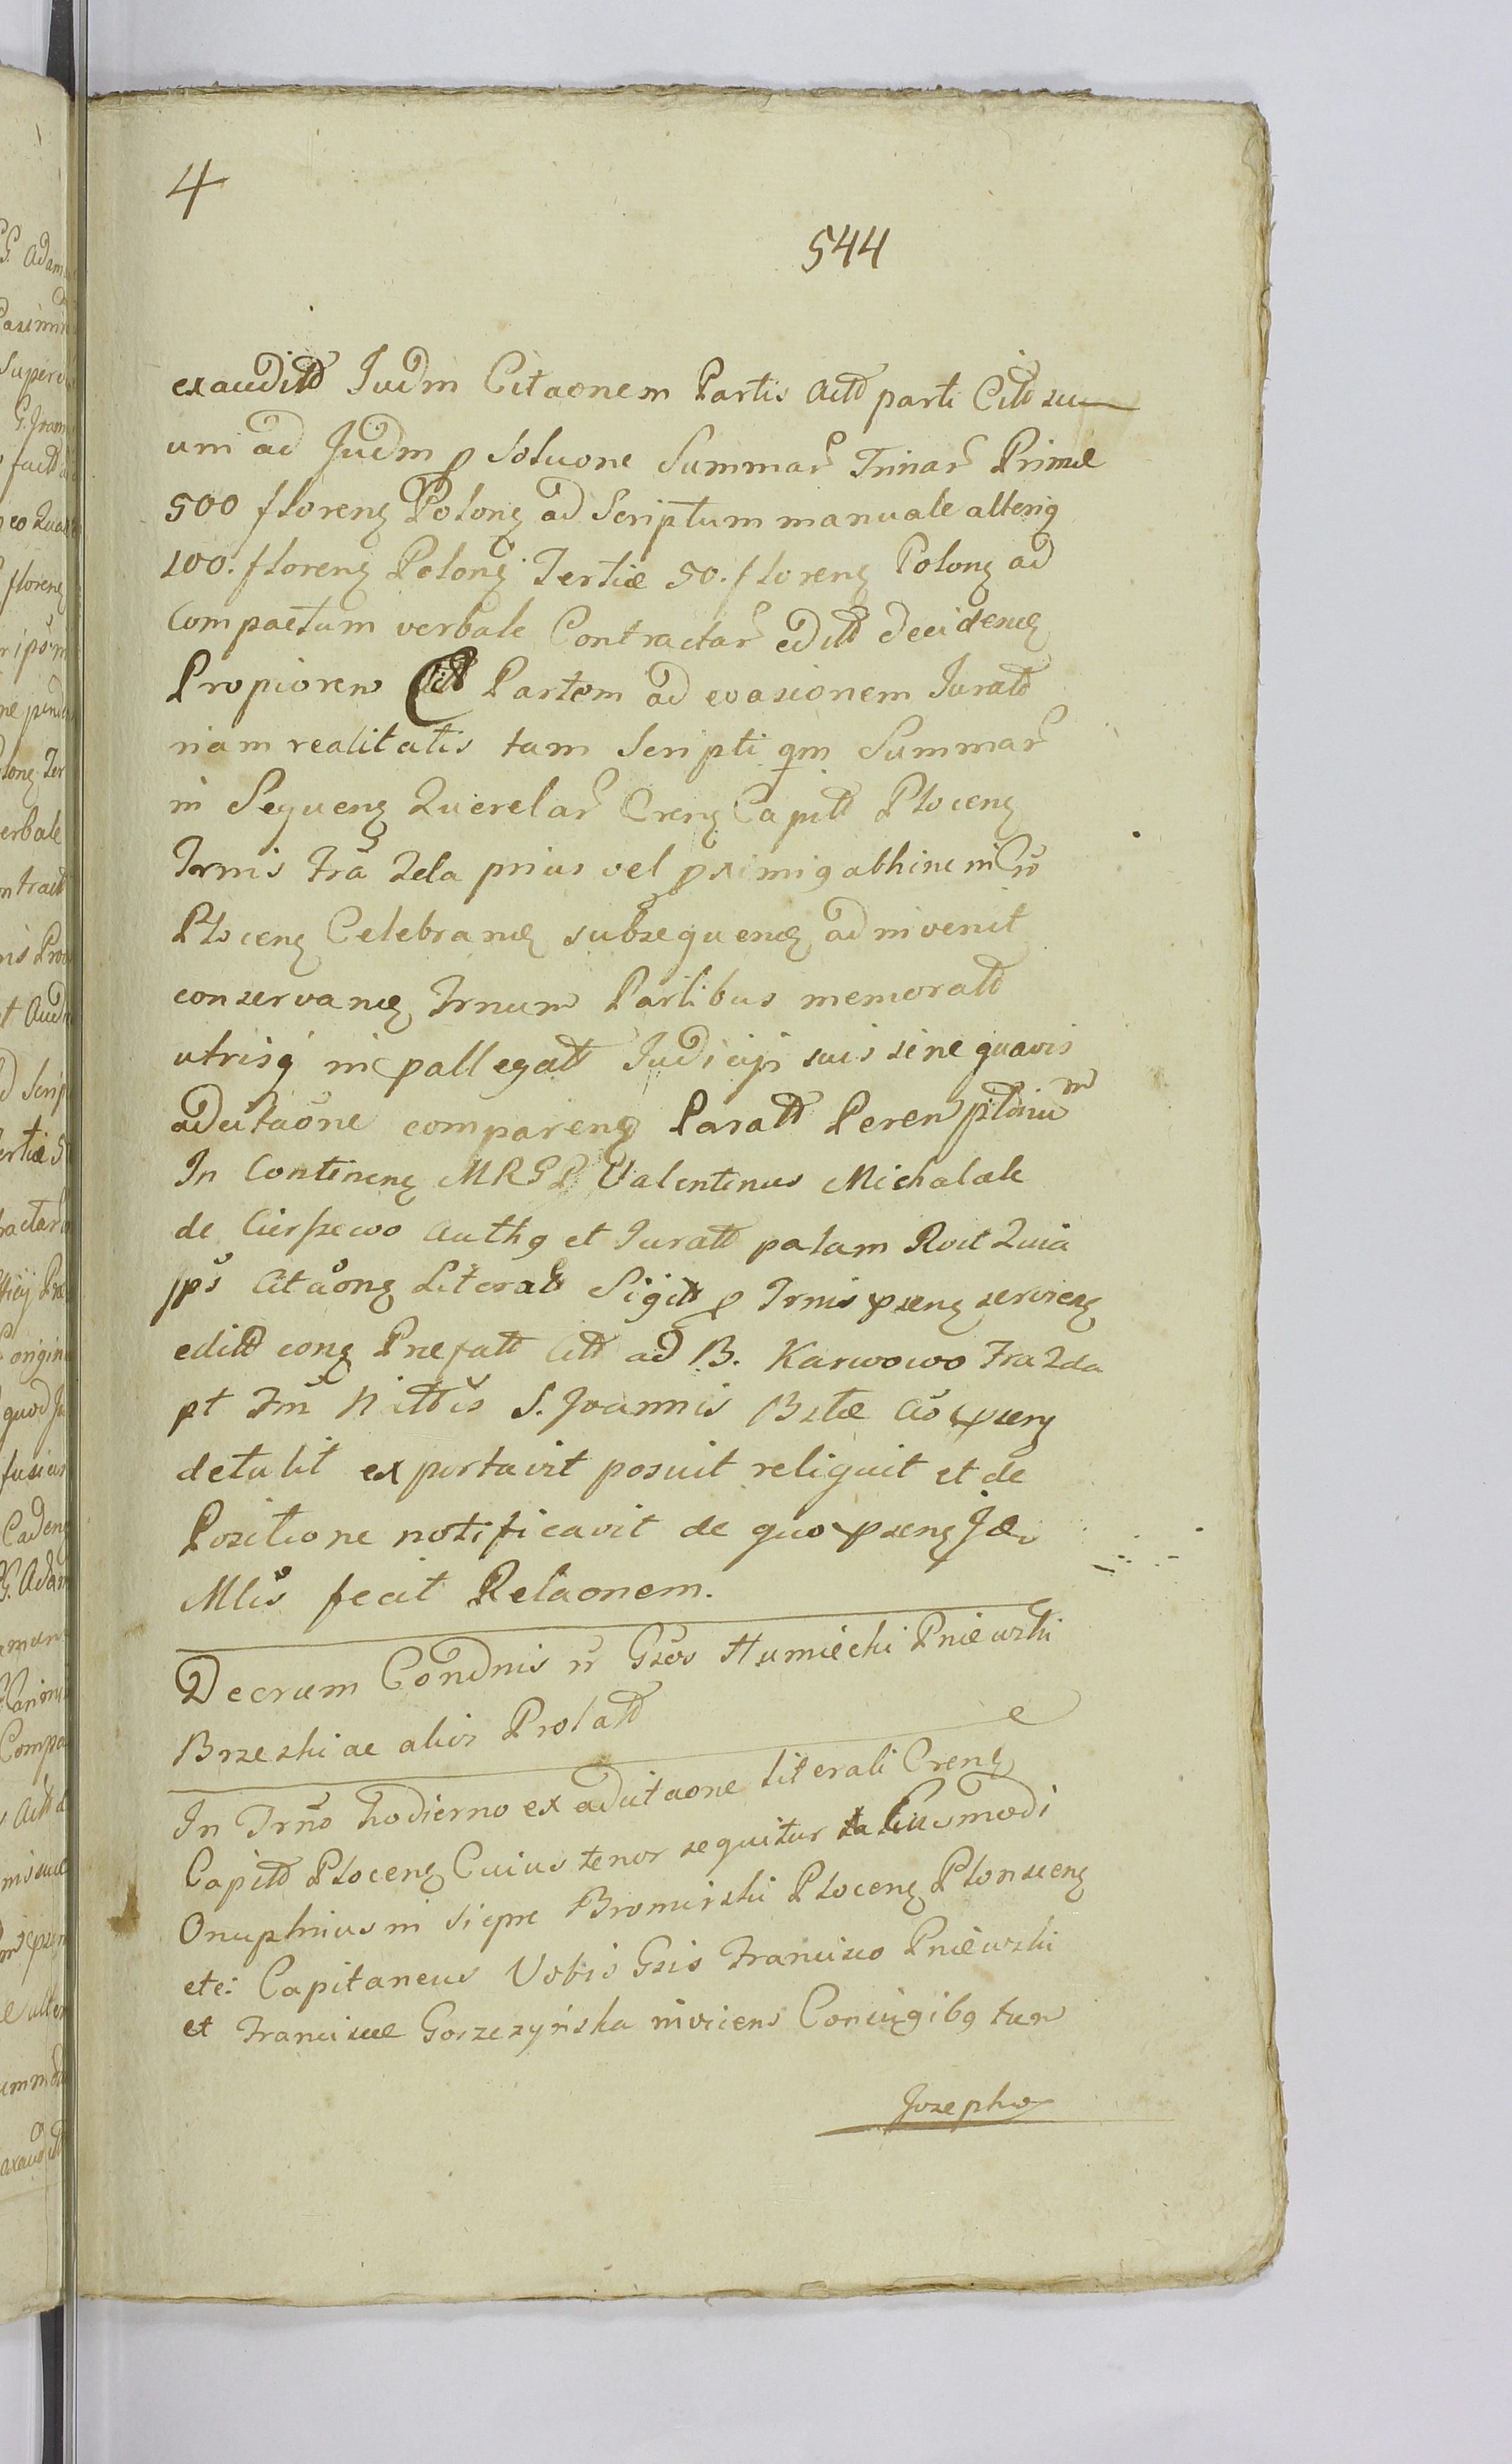 4
544
exauditt Judm Citaonem Partis Actt parti Citt su
um ad Judm p Soluone Summar Trinar Primæ
500 floreng Polong ad Scriptum manuale alterig
100. floreng Polong Tertiæ 50. floreng Polong ad
Compactum verbale Contractar editt decidend
Propiorem Citt Partem ad evasionem Juratt
riam realitatis tam Scripti qm Summar
in Sequeng Querelar Creng Capitt Ploceng
Trmis fra 2da prius vel pximig abhinc in Cro
Ploceng Celebrand subsequend adinvenit
conservand Trnum Partibus memoratt
utrisq in pallegatt Judicij suis sine quavis
adcitaone compareng Paratt Peremptorium
In Contineng MRGD Valentinus Michalak
de Cierszewo Authg et Juratt palam Rcit Quia
ips Citaong Literatt Sigitt p Trmis pseng servieng
editt eong Prefatt Citt ad B. Karwowo fra 2da
pt Fm Nattis S. Joannis Bstæ Ao pseng
detulit exportavit posuit reliquit et de
Positione notificavit de quo pseng Jdem
Mlis fecit Relaonem.
Decrum Condnis nr Gsos Humiecki Pniewski
Brzeski ac alios Prolatt
In Trno hodierno ex adcitaone literali Creng
Capitt Ploceng Cuius tenor sequitur Eiusmodi
Onuphrius in Siepre Bromirski Ploceng Plonsceng
etc: Capitaneus Vobis Gsis Francisco Pniewski
et Franciscæ Gorzczyńska invicem Coniugibg tum
Josepho